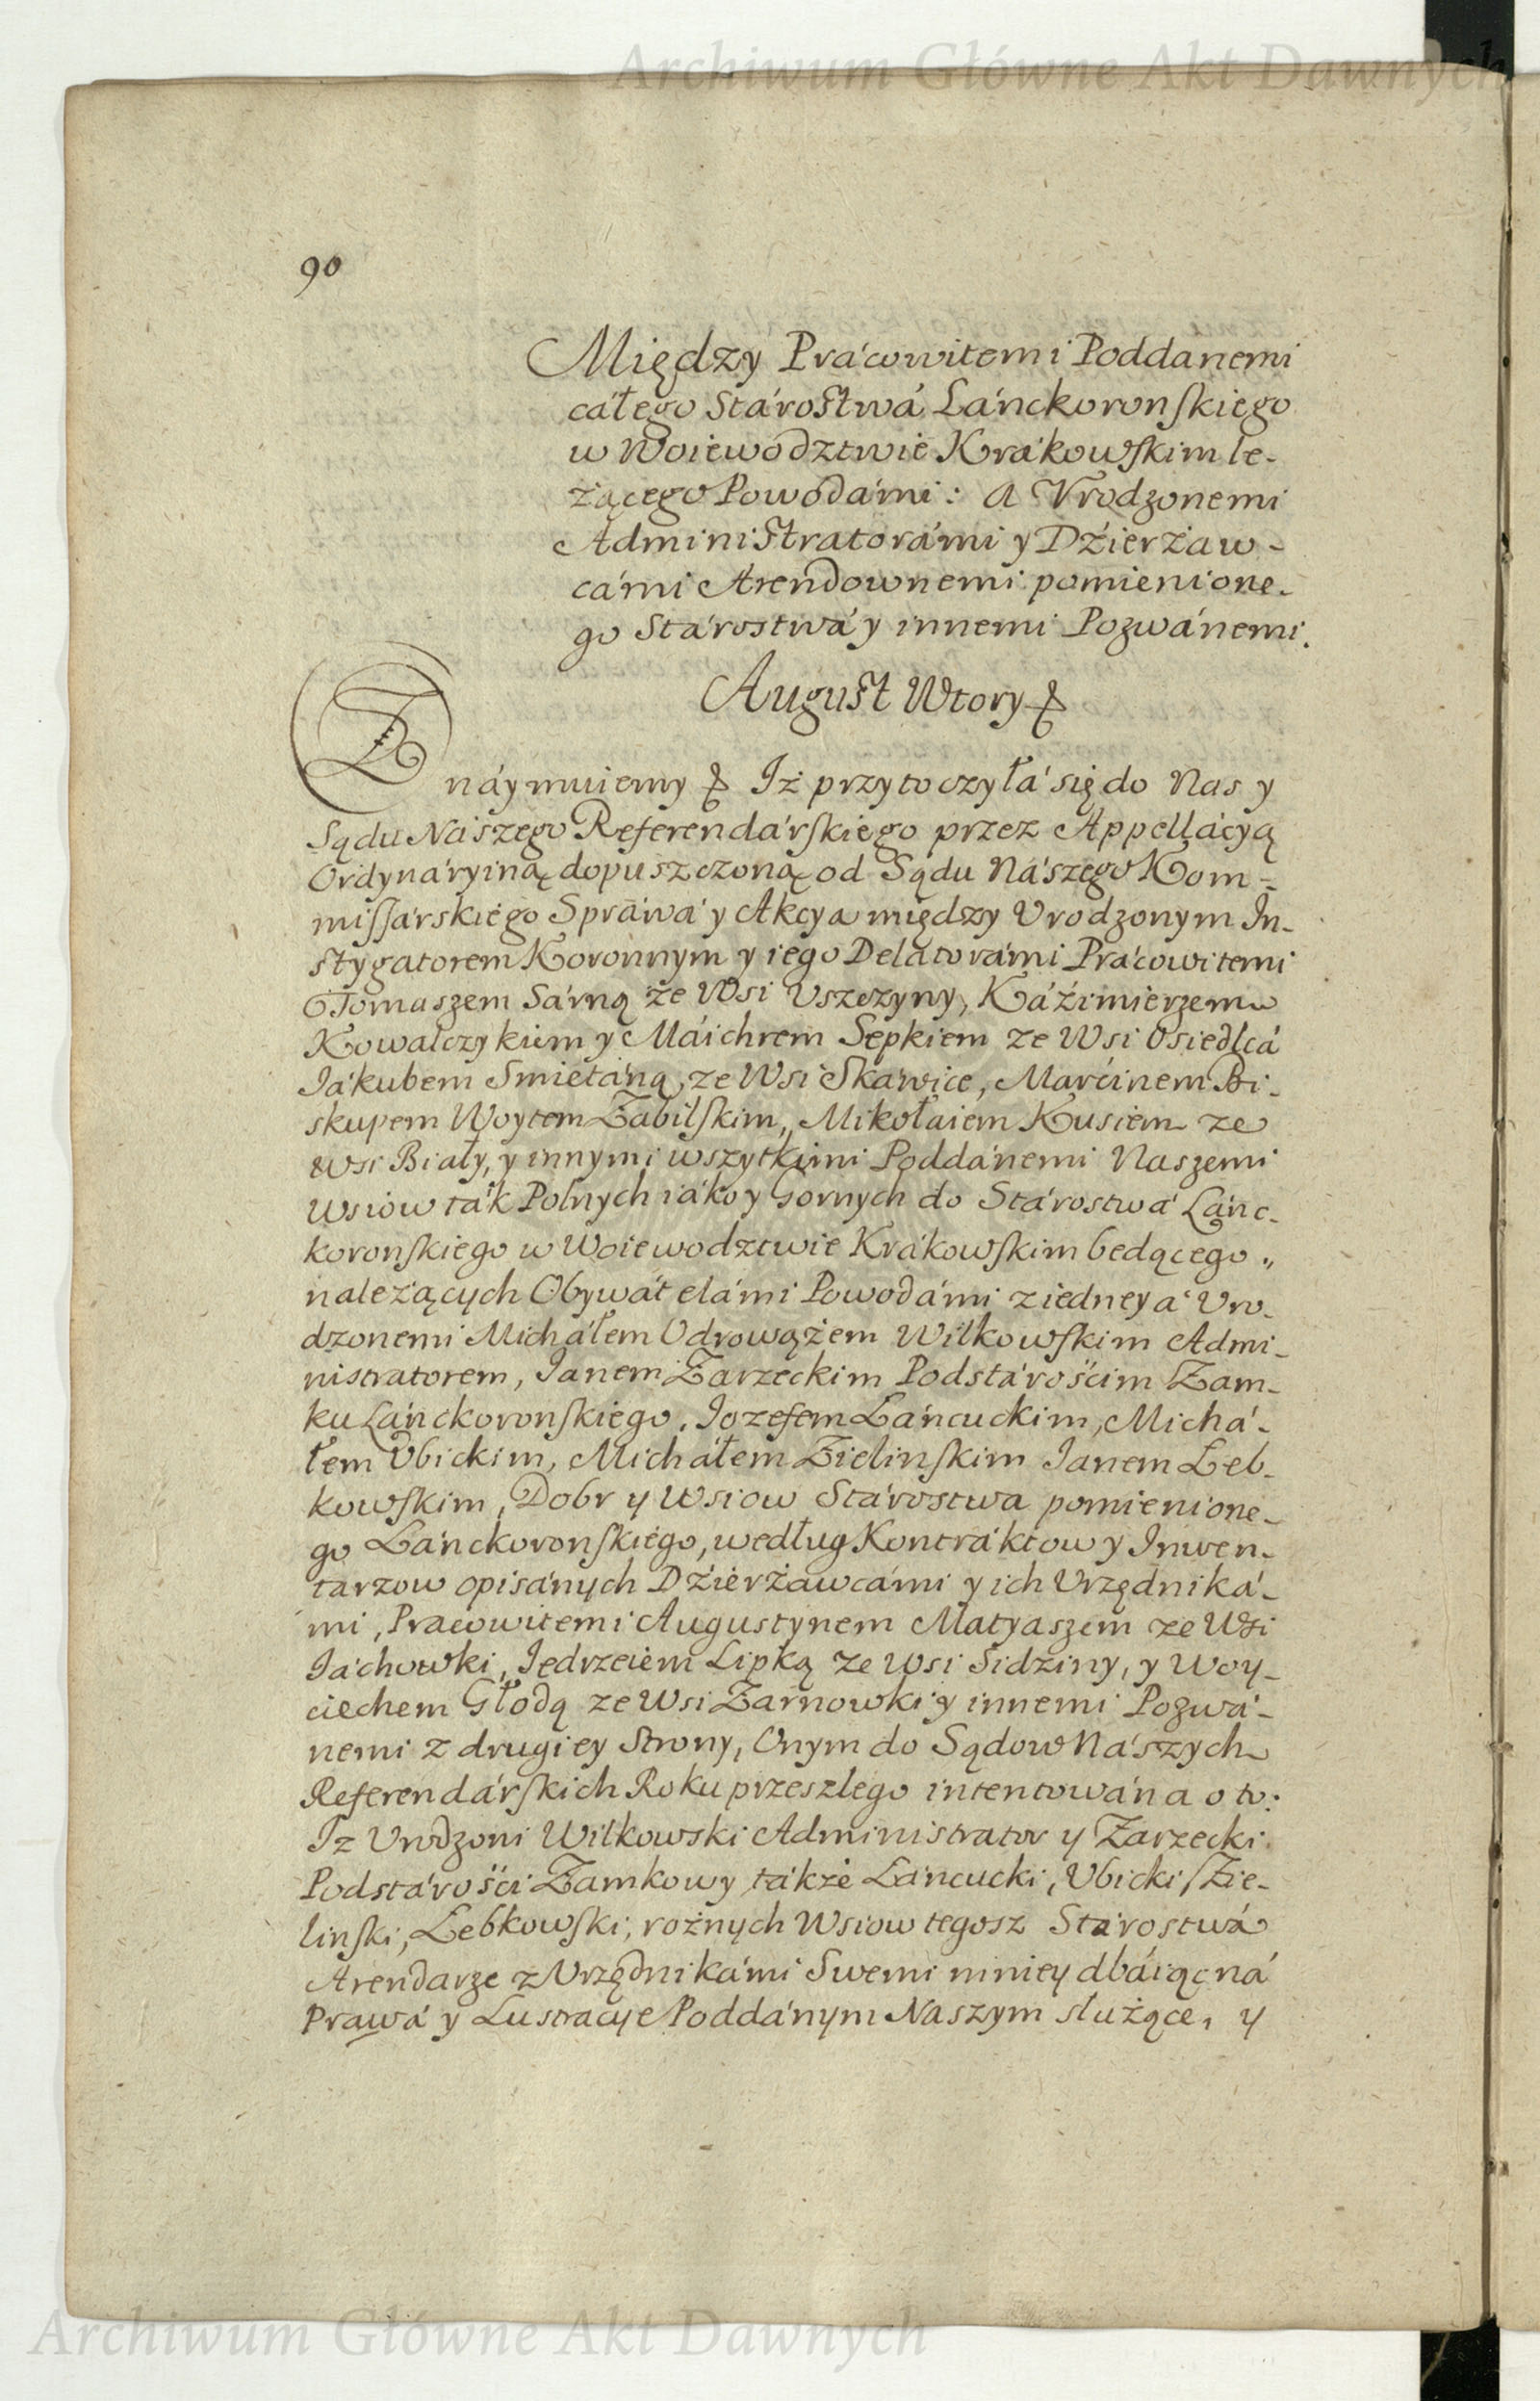 Archiwum Główne Akt Dawnych
90
Między Prácowitemi Poddanemi
cáłego Stárostwá Lánckoronskiego
w Woiewodztwie Krákowskim le-
żącego Powodámi: A Vrodzonemi
Administratorámi y Dźierżaw-
cámi Arendownemi pomienione-
go Stárostwá y innemi Pozwánemi.
August Wtory &
Znáymuiemy & Iż przytoczyłá się do Nas y
Sądu Nászego Referendárskiego przez Appellácyą
Ordynáryiną dopuszczoną od Sądu Nászego Kom-
missárskiego Spráwá y Akcya między Vrodzonym In-
stygatorem Koronnym y iego Delatorámi Prácowitemi
Tomaszem Sárną ze Wsi Vszczyny, Káźimierzem
Kowalczykiem y Máichrem Sępkiem ze Wsi Osiedlcá
Iákubem Smietáną, ze Wsi Skáwice, Marćinem Bi-
skupem Woytem Zabilskim, Mikołaiem Kusiem ze
Wsi Biały, y innymi wszytkimi Poddánemi Naszemi
Wsiow ták Polnych iáko y Gornych do Stárostwá Lánc-
koronskiego w Woiewodztwie Krákowskim bedącego,,
należących Obywátelámi Powodámi z iedney á Vro-
dzonemi Michałem Odrowążem Wilkowskim Admi-
nistratorem, Ianem Zarzeckim Podstárośćim Zam-
ku Lánckoronskiego, Iozefem Łáncuckim, Michá-
łem Vbickim, Micháłem Zielinskim Ianem Łeb-
kowskim, Dobr y Wsiow Stárostwa pomienione-
go Łánckoronskiego, według Kontráktow y Inwen-
tarzow opisánych Dźierżawcámi y ich Vrzędniká-
mi, Pracowitemi Augustynem Matyaszem ze Wsi
Iáchowki, Iędrzeiem Lipką ze Wsi Sidźiny, y Woy-
ciechem Głodą ze Wsi Zarnowki y innemi Pozwá-
nemi z drugiey Strony, Onym do Sądow Nászych
Referendárskich Roku przeszlego intentowána o to:
Iz Vrodzoni Wilkowski Administrator y Zarzecki
Podstárośći Zamkowy tákże Łáncucki, Vbicki, Zie-
linski, Łebkowski, rożnych Wsiow tegosz Stárostwá
Arendarze z Vrzędnikámi Swemi niniey dbáiąc ná
Prawá y Lustracye Poddánym Naszym służące, y
Archiwum Główne Akt Dawnych